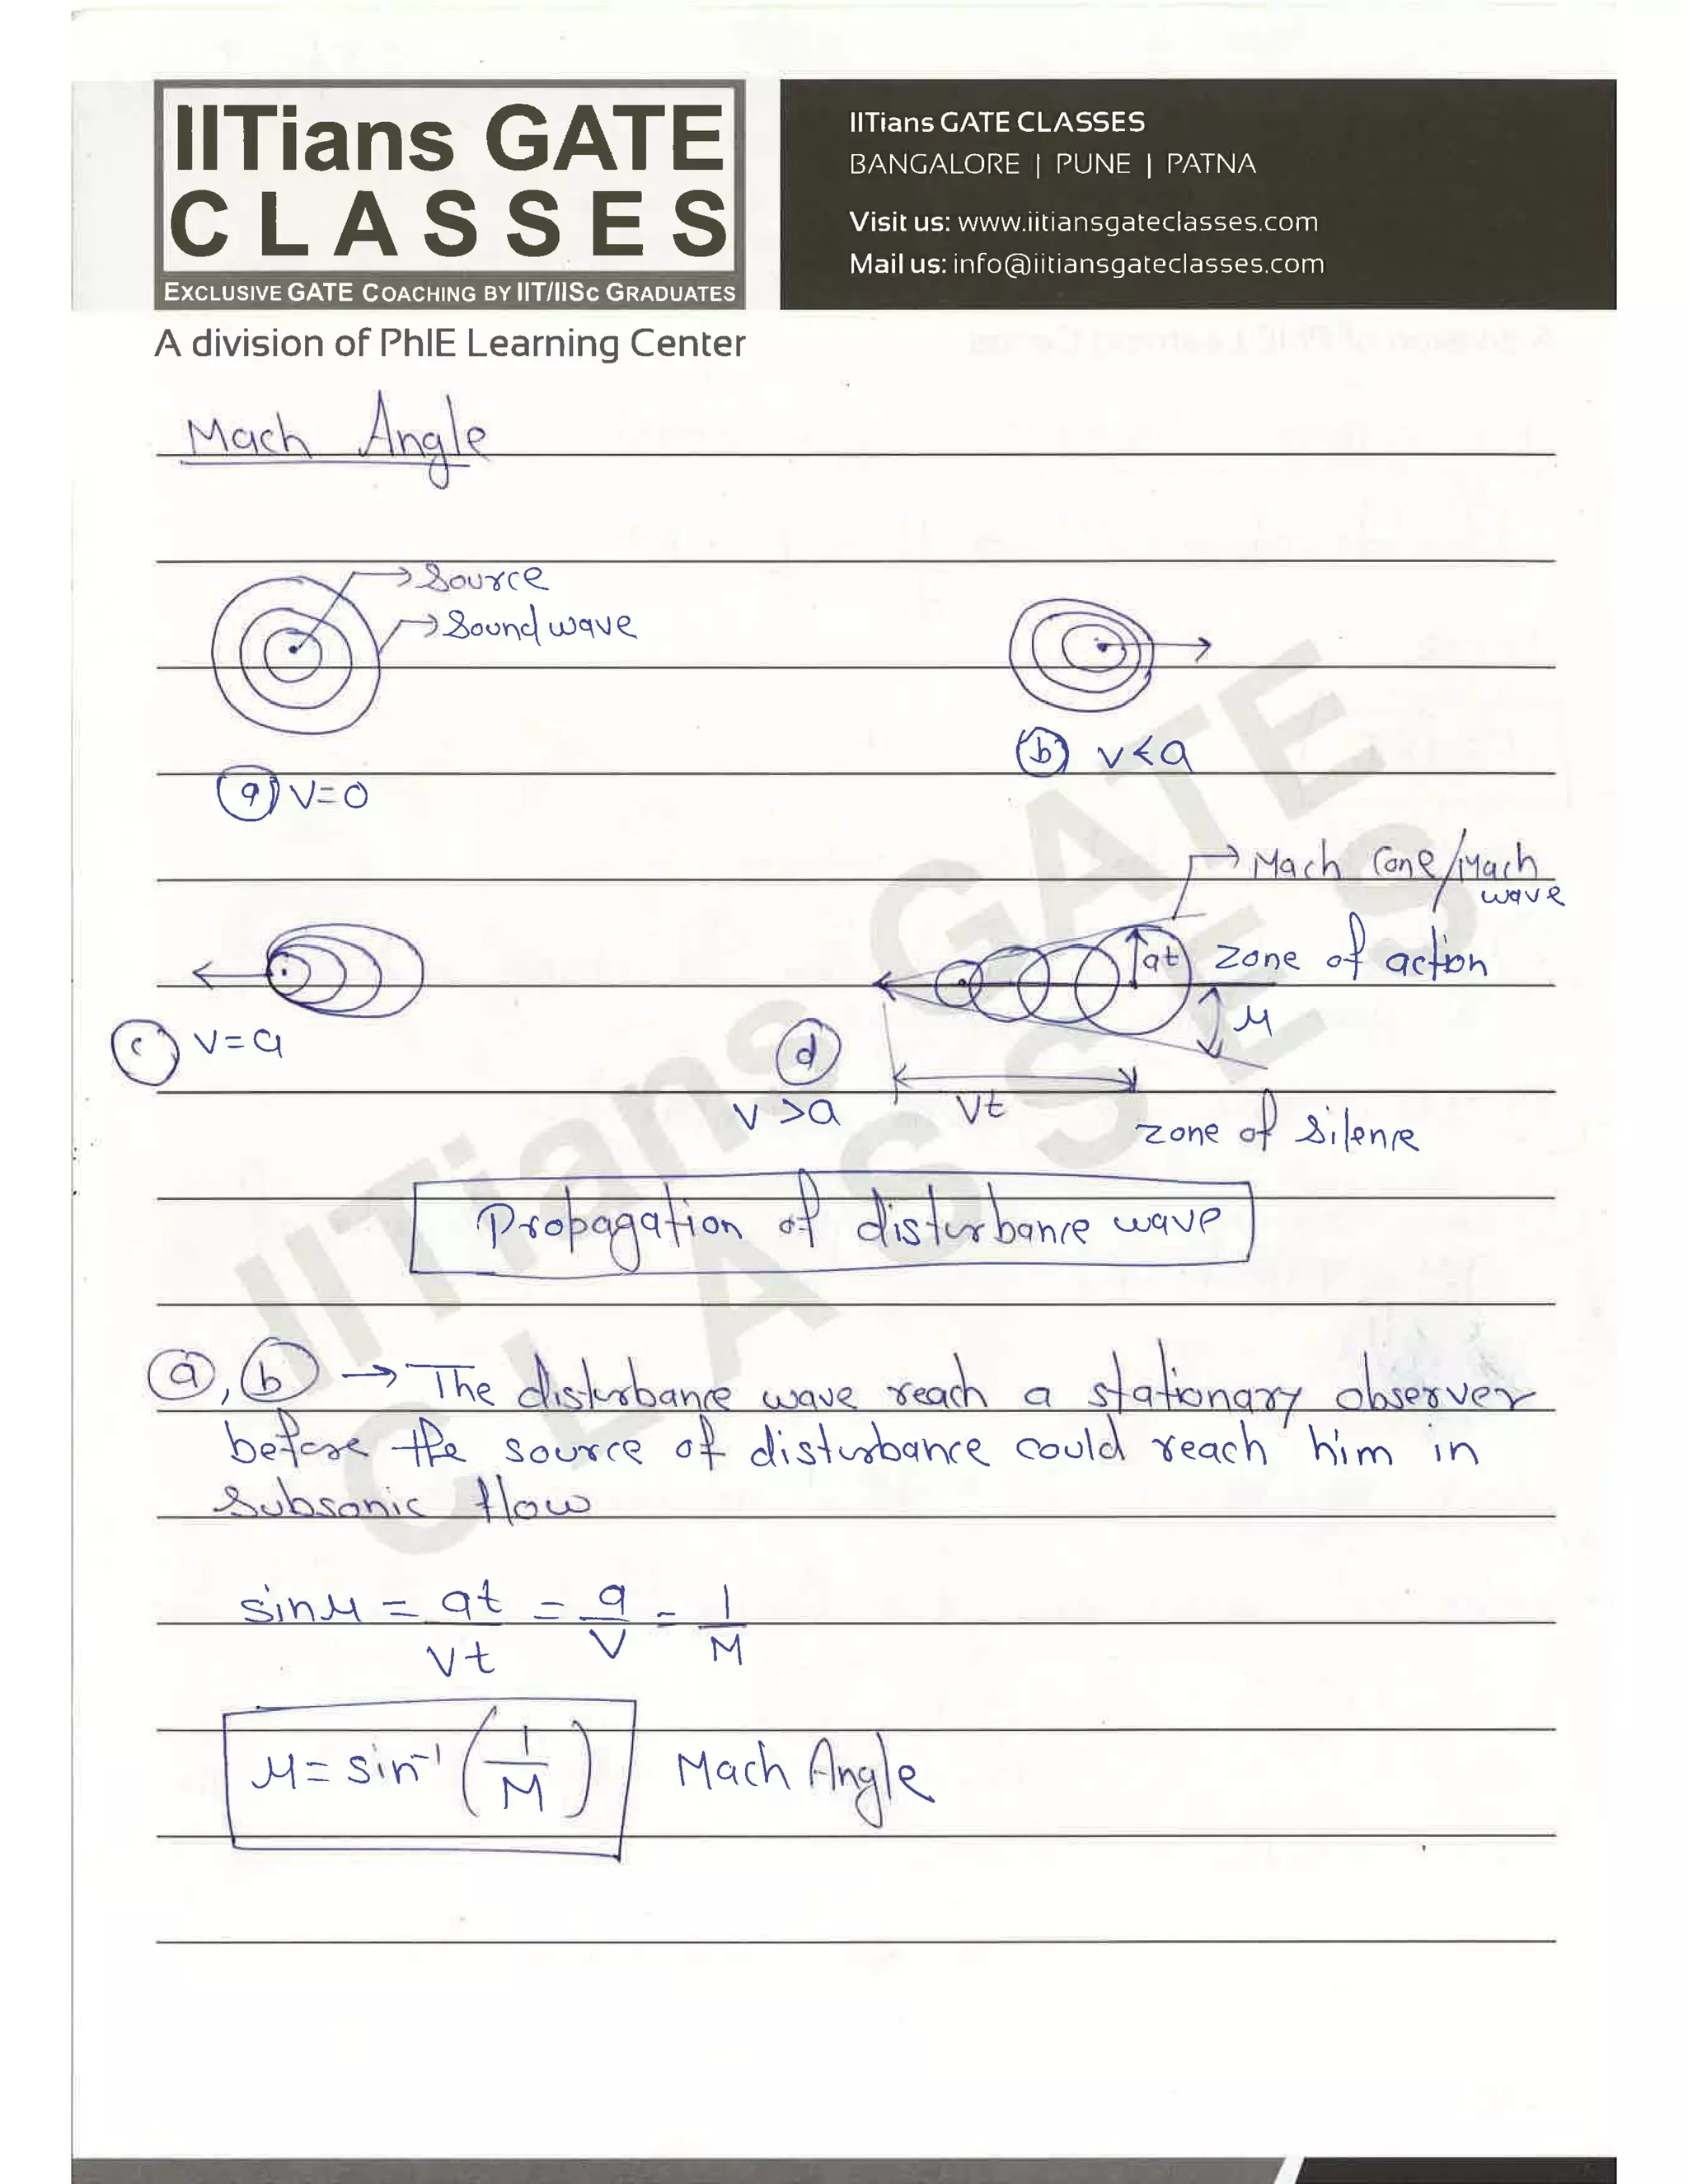 IITians GATE
CLASSES
EXCLUSIVE GATE COACHING BY IIT/IISc GRADUATES
A division of PhIE Learning Center
IITians GATE CLASSES
BANGALORE | PUNE | PATNA
Visit us: www.iitiansgateclasses.com
Mail us: info@iitiansgateclasses.com
Mach Angle
→ Source
→ Sound wave
(a) V=0
(b) V<a
(c) V=a
→ Mach Cone/Mach
wave
at
zone of action
μ
(d)
V>a
Vt
zone of silence
Propagation of disturbance wave
(a), (b) → The disturbance wave reach a stationary observer
before the source of disturbance could reach him in
subsonic flow
sinμ = at/Vt = a/V = 1/M
μ = sin⁻¹(1/M) Mach Angle
IITians GATE
CLASSES